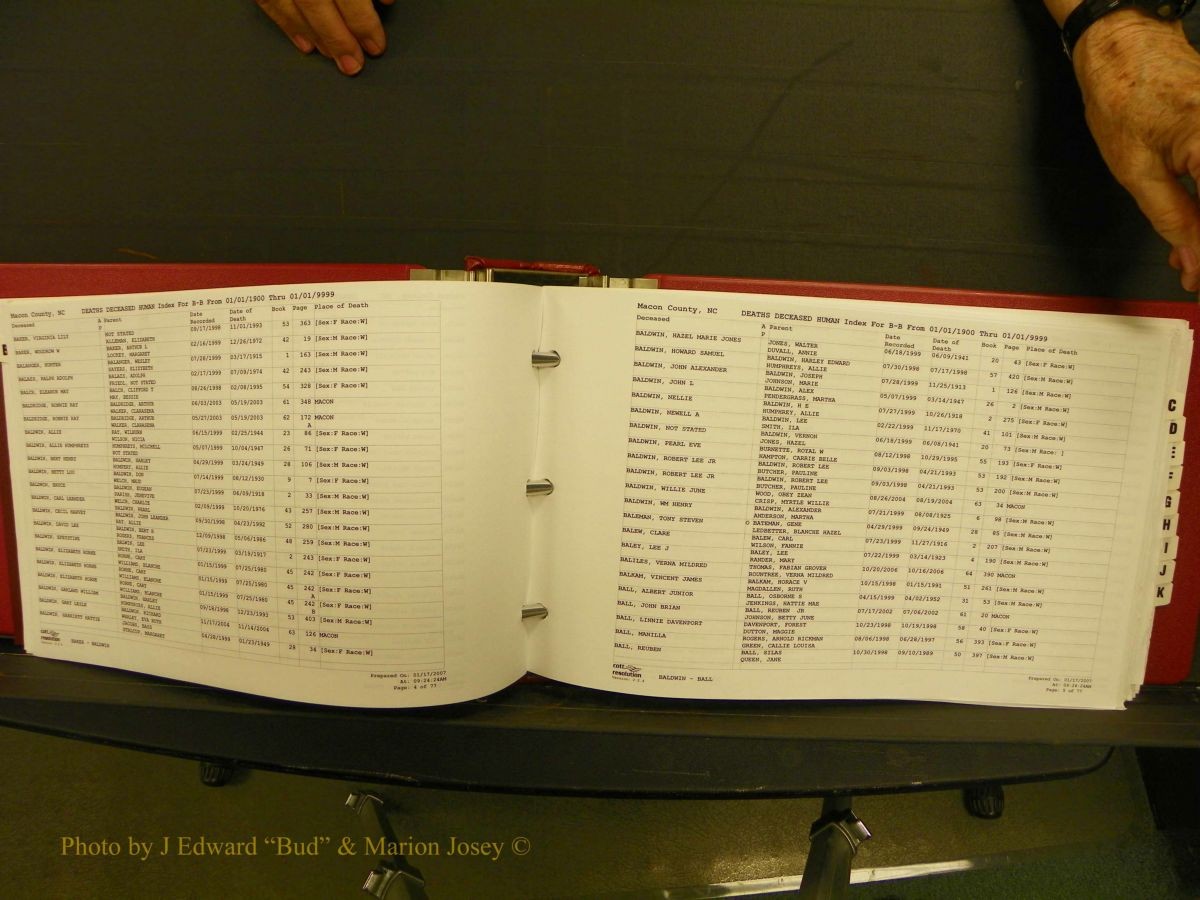 Macon County, NC DEATHS DECEASED HUMAN Index For B-B From 01/01/1900 Thru 01/01/9999
Deceased A Parent Date Recorded Date of Death Book Page Place of Death
P
NOT STATED
BAKER, VIRGINIA 09/17/1998 11/01/1993 53 363 [Sex:F Race:W]
ALLEMAN, ELIZABETH
BAKER, WOODROW W BAKER, ARTHUR L 02/16/1999 12/26/1972 42 19 [Sex:M Race:W]
LOCKEY, MARGARET
BALANGER, HUNTER BALANGER, WESLEY 07/28/1999 03/17/1915 1 163 [Sex:M Race:W]
SAYERS, ELIZIBETH
BALASZ, RALPH ADOLPH BALASZ, ADOLPH 02/17/1999 07/09/1974 42 243 [Sex:M Race:W]
FRIEDL, NOT STATED
BALCH, ELEANOR MAY BALCH, CLIFFORD T 08/26/1998 02/08/1995 54 328 [Sex:F Race:W]
MAY, BESSIE
BALDRIDGE, RONNIE RAY BALDRIDGE, ARTHUR 06/03/2003 05/19/2003 61 348 MACON
WALKER, CLARASENA
BALDRIDGE, RONNIE RAY BALDRIDGE, ARTHUR 05/27/2003 05/19/2003 62 172 MACON
WALKER, CLARASENA A
BALDWIN, ALLIE RAY, WILBURN 06/15/1999 02/25/1944 23 86 [Sex:F Race:W]
WILSON, NICIA
BALDWIN, ALLIE HUMPHREYS HUMPHREYS, MITCHELL 05/07/1999 10/04/1947 26 71 [Sex:F Race:W]
NOT STATED
BALDWIN, BERT HENRY BALDWIN, HARLEY 04/29/1999 03/24/1949 28 106 [Sex:M Race:W]
HUMFREY, ALLIE
BALDWIN, BETTY LOU BALDWIN, DON 07/14/1999 08/12/1930 9 7 [Sex:F Race:W]
WELCH, MAUD
BALDWIN, BRUCE 07/23/1999 06/09/1918 2 33 [Sex:M Race:W]
BALDWIN, CARL LEANDER 02/09/1999 10/20/1976 43 257 [Sex:M Race:W]
BALDWIN, CECIL HARVEY 09/30/1998 04/23/1992 52 280 [Sex:M Race:W]
BALDWIN, DAVID LEE 12/09/1998 05/06/1986 48 259 [Sex:M Race:W]
BALDWIN, ERNSTINE 07/23/1999 03/19/1917 2 243 [Sex:F Race:W]
BALDWIN, ELIZABETH HORNE 01/15/1999 07/25/1980 45 242 [Sex:F Race:W]
BALDWIN, ELIZABETH HORNE 01/15/1999 07/25/1980 45 242 [Sex:F Race:W]
A
BALDWIN, ELIZABETH HORNE 01/15/1999 07/25/1980 45 242 [Sex:F Race:W]
B
BALDWIN, GARLAND WILLIAM 09/16/1998 12/23/1993 53 403 [Sex:M Race:W]
BALDWIN, GARY LESLIE 11/17/2004 11/14/2004 63 126 MACON
BALDWIN, HARRIETT HATTIE 04/28/1999 01/23/1949 28 34 [Sex:F Race:W]
cott resolution
BAKER - BALDWIN
Prepared On: 01/17/2007
At: 09:24:24AM
Page: 4 of 77
Macon County, NC DEATHS DECEASED HUMAN Index For B-B From 01/01/1900 Thru 01/01/9999
Deceased A Parent Date Recorded Date of Death Book Page Place of Death
P
BALDWIN, HAZEL MARIE JONES JONES, WALTER 06/18/1999 06/09/1941 20 43 [Sex:F Race:W]
DUVALL, ANNIE
BALDWIN, HOWARD SAMUEL BALDWIN, HARLEY EDWARD 07/30/1998 07/17/1998 57 420 [Sex:M Race:W]
HUMPHREYS, ALLIE
BALDWIN, JOHN ALEXANDER BALDWIN, JOSEPH 07/28/1999 11/25/1913 1 126 [Sex:M Race:W]
JOHNSON, MARIE
BALDWIN, JOHN L BALDWIN, ALEX 05/07/1999 03/14/1947 26 2 [Sex:M Race:W]
PENDERGRASS, MARTHA
BALDWIN, NELLIE BALDWIN, H E 07/27/1999 10/26/1918 2 275 [Sex:F Race:W]
HUMPHREY, ALLIE
BALDWIN, NEWELL A BALDWIN, LEE 02/22/1999 11/17/1970 41 101 [Sex:M Race:W]
SMITH, ILA
BALDWIN, NOT STATED BALDWIN, VERNON 06/18/1999 06/08/1941 20 73 [Sex:M Race: ]
JONES, HAZEL
BALDWIN, PEARL EVE BURNETTE, ROYAL W 08/12/1998 10/29/1995 55 193 [Sex:F Race:W]
HAMPTON, CARRIE BELLE
BALDWIN, ROBERT LEE JR BALDWIN, ROBERT LEE 09/03/1998 04/21/1993 53 192 [Sex:M Race:W]
BUTCHER, PAULINE
BALDWIN, ROBERT LEE JR BALDWIN, ROBERT LEE 09/03/1998 04/21/1993 53 200 [Sex:M Race:W]
BUTCHER, PAULINE
BALDWIN, WILLIE JUNE WOOD, OBEY ZEAN 08/26/2004 08/19/2004 63 34 MACON
CRISP, MYRTLE WILLIE
BALDWIN, WM HENRY BALDWIN, ALEXANDER 07/21/1999 08/08/1925 6 98 [Sex:M Race:W]
ANDERSON, MARTHA
BALEMAN, TONY STEVEN O BATEMAN, GENE 04/29/1999 09/24/1949 28 85 [Sex:M Race:W]
LEDBETTER, BLANCHE HAZEL
BALEW, CLARE BALEW, CARL 07/23/1999 11/27/1916 2 207 [Sex:M Race:W]
WILSON, FANNIE
BALEY, LEE J BALEY, LEE 07/22/1999 03/14/1923 4 190 [Sex:M Race:W]
RANDER, MARY
BALILES, VERNA MILDRED THOMAS, FABIAN GROVER 10/20/2006 10/16/2006 64 390 MACON
ROUNTREE, VERNA MILDRED
BALKAM, VINCENT JAMES BALKAM, HORACE V 10/15/1998 01/15/1991 51 261 [Sex:M Race:W]
MAGDALLEN, RUTH
BALL, ALBERT JUNIOR BALL, OSBORNE S 04/15/1999 04/02/1952 31 53 [Sex:M Race:W]
JENKINGS, HATTIE MAE
BALL, JOHN BRIAN BALL, REUBEN JR 07/17/2002 07/06/2002 61 20 MACON
JOHNSON, BETTY JUNE
BALL, LINNIE DAVENPORT DAVENPORT, FOREST 10/23/1998 10/19/1998 58 40 [Sex:F Race:W]
DUTTON, MAGGIE
BALL, MANILLA ROGERS, ARNOLD RICKMAN 08/06/1998 06/28/1997 56 393 [Sex:F Race:W]
GREEN, CALLIE LOUISA
BALL, REUBEN BALL, SILAS 10/30/1998 09/10/1989 50 397 [Sex:M Race:W]
QUEEN, JANE
cott resolution
BALDWIN - BALL
Prepared On: 01/17/2007
At: 09:24:24AM
Page: 5 of 77
C
D
E
F
G
H
I
J
K
Photo by J Edward “Bud” & Marion Josey ©